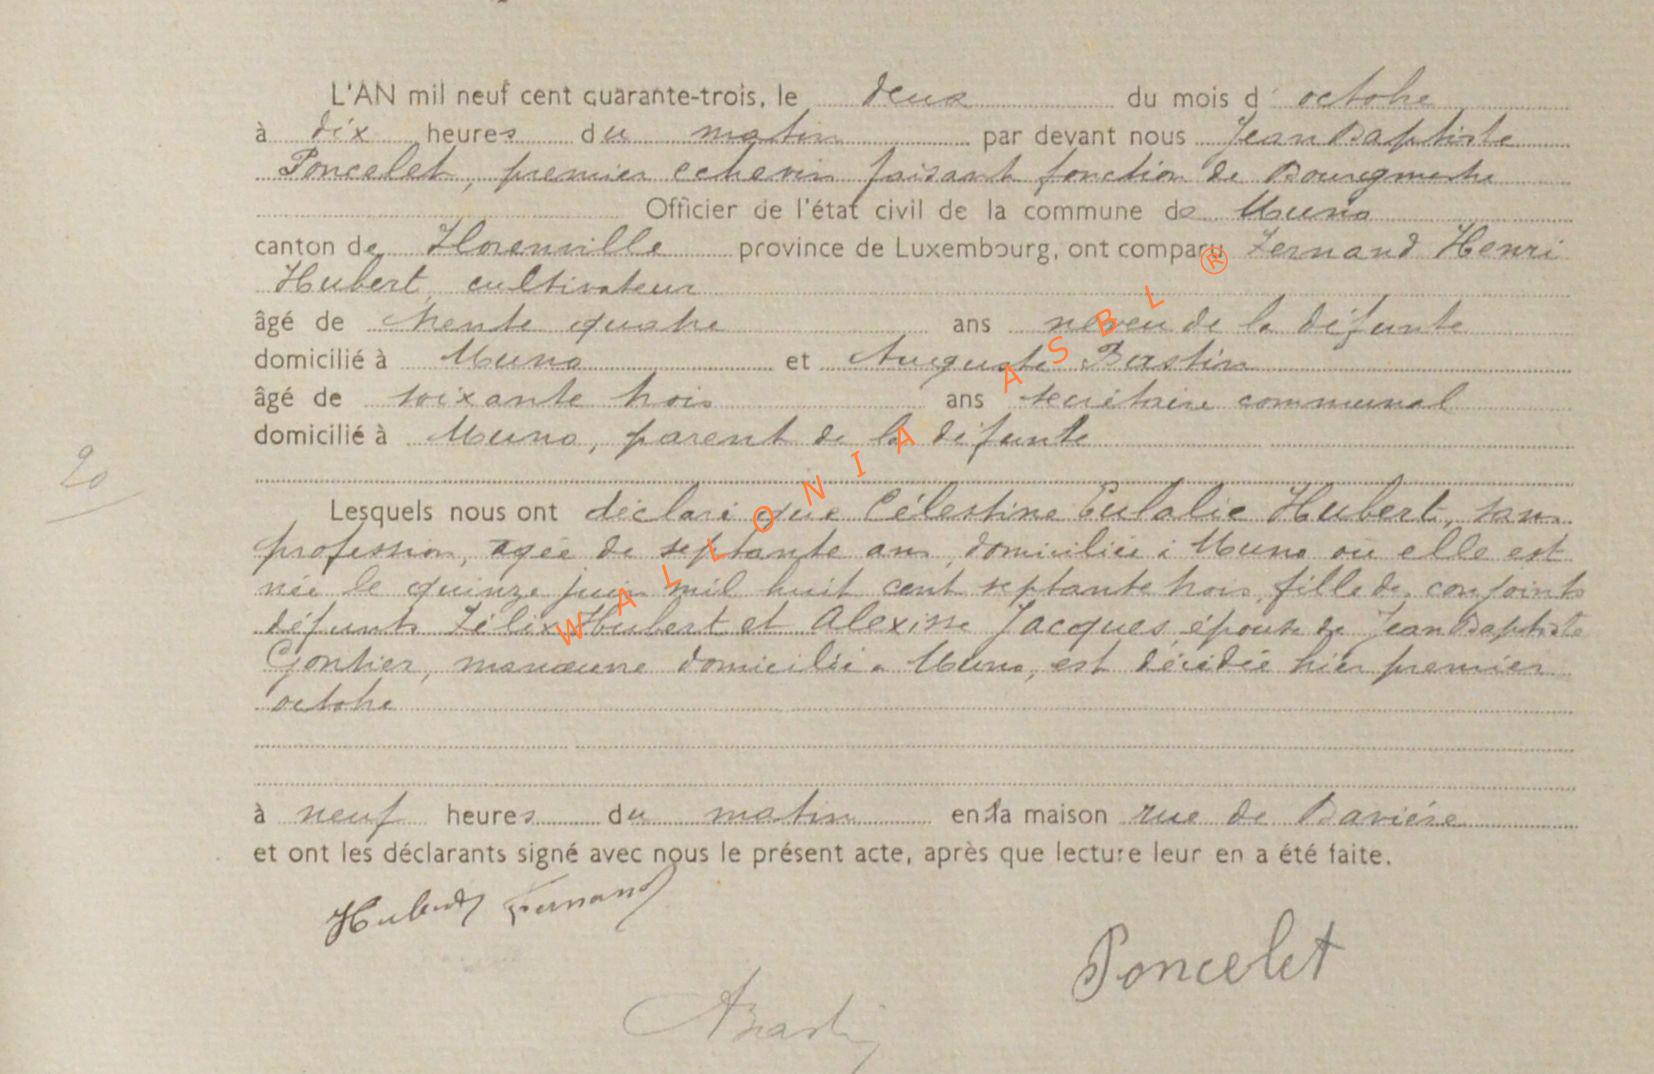 L'AN mil neuf cent quarante-trois, le deux du mois d' octobre
à dix heures du matin par devant nous Jean Baptiste
Poncelet, premier echevin faisant fonction de Bourgmestre
Officier de l'état civil de la commune de Muno
canton de Florenville province de Luxembourg, ont comparu Fernand Henri
Hubert, cultivateur
âgé de trente quatre ans neveu de la défunte
domicilié à Muno et Auguste Bastin
âgé de soixante trois ans secrétaire communal
domicilié à Muno, parent de la défunte
20
Lesquels nous ont déclaré que Célestine Eulalie Hubert, sans
profession, agée de septante ans, domiciliée à Muno où elle est
née le quinze juin mil huit cent septante trois, fille de conjoints
défunts Félix Hubert et Alexisse Jacques, épouse de Jean Baptiste
Gontier, manœuvre domicilié à Muno, est décédée hier premier
octobre
à neuf heures du matin en sa maison rue de Bavière
et ont les déclarants signé avec nous le présent acte, après que lecture leur en a été faite.
Hubert Fernand
Poncelet
ABastin
WALLONIA ASBL ®